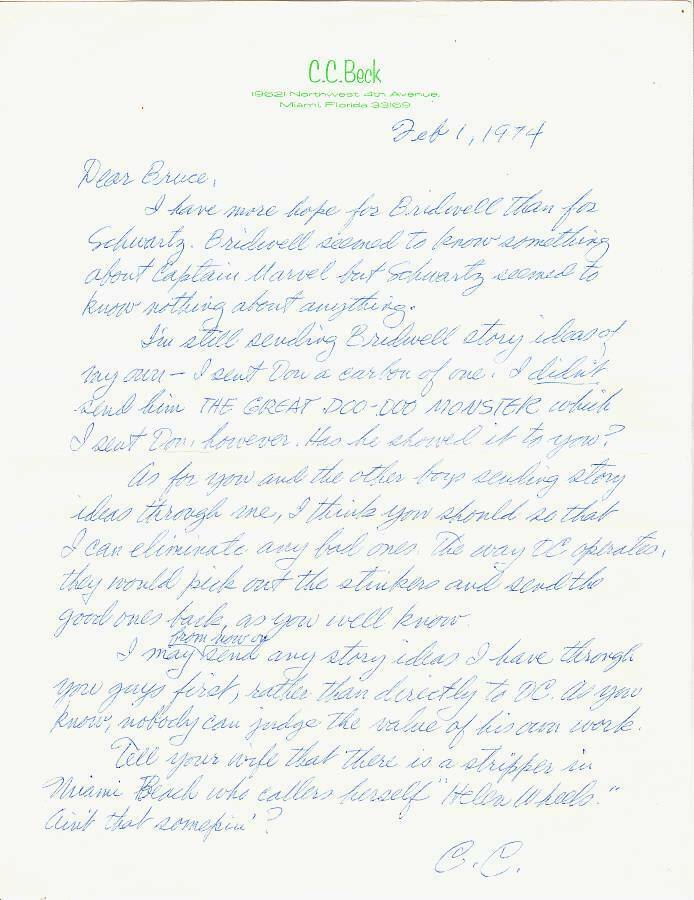 C.C. Beck
19621 Northwest 4th Avenue,
Miami, Florida 33169
Feb 1, 1974
Dear Bruce,
I have more hope for Bridwell than for
Schwartz. Bridwell seemed to know something
about Captain Marvel but Schwartz seemed to
know nothing about anything.
I'm still sending Bridwell story ideas of
my own – I sent Don a carbon of one. I didn't
send him THE GREAT DOO-DOO MONSTER which
I sent Don, however. Has he showed it to you?
As for you and the other boys sending story
ideas through me, I think you should so that
I can eliminate any bad ones. The way DC operates,
they would pick out the stinkers and send the
good ones back, as you well know.
from now on
I may send any story ideas I have through
you guys first, rather than dirictly to DC. As you
know, nobody can judge the value of his own work.
Tell your wife that there is a stripper in
Miami Beach who callers herself "Helen Wheels."
Ain't that somepin'?
C.C.